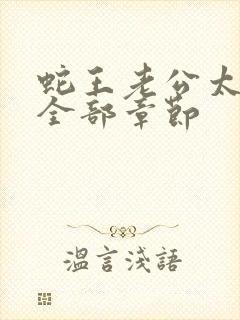 蛇王老公太
全部章節
溫言淺語